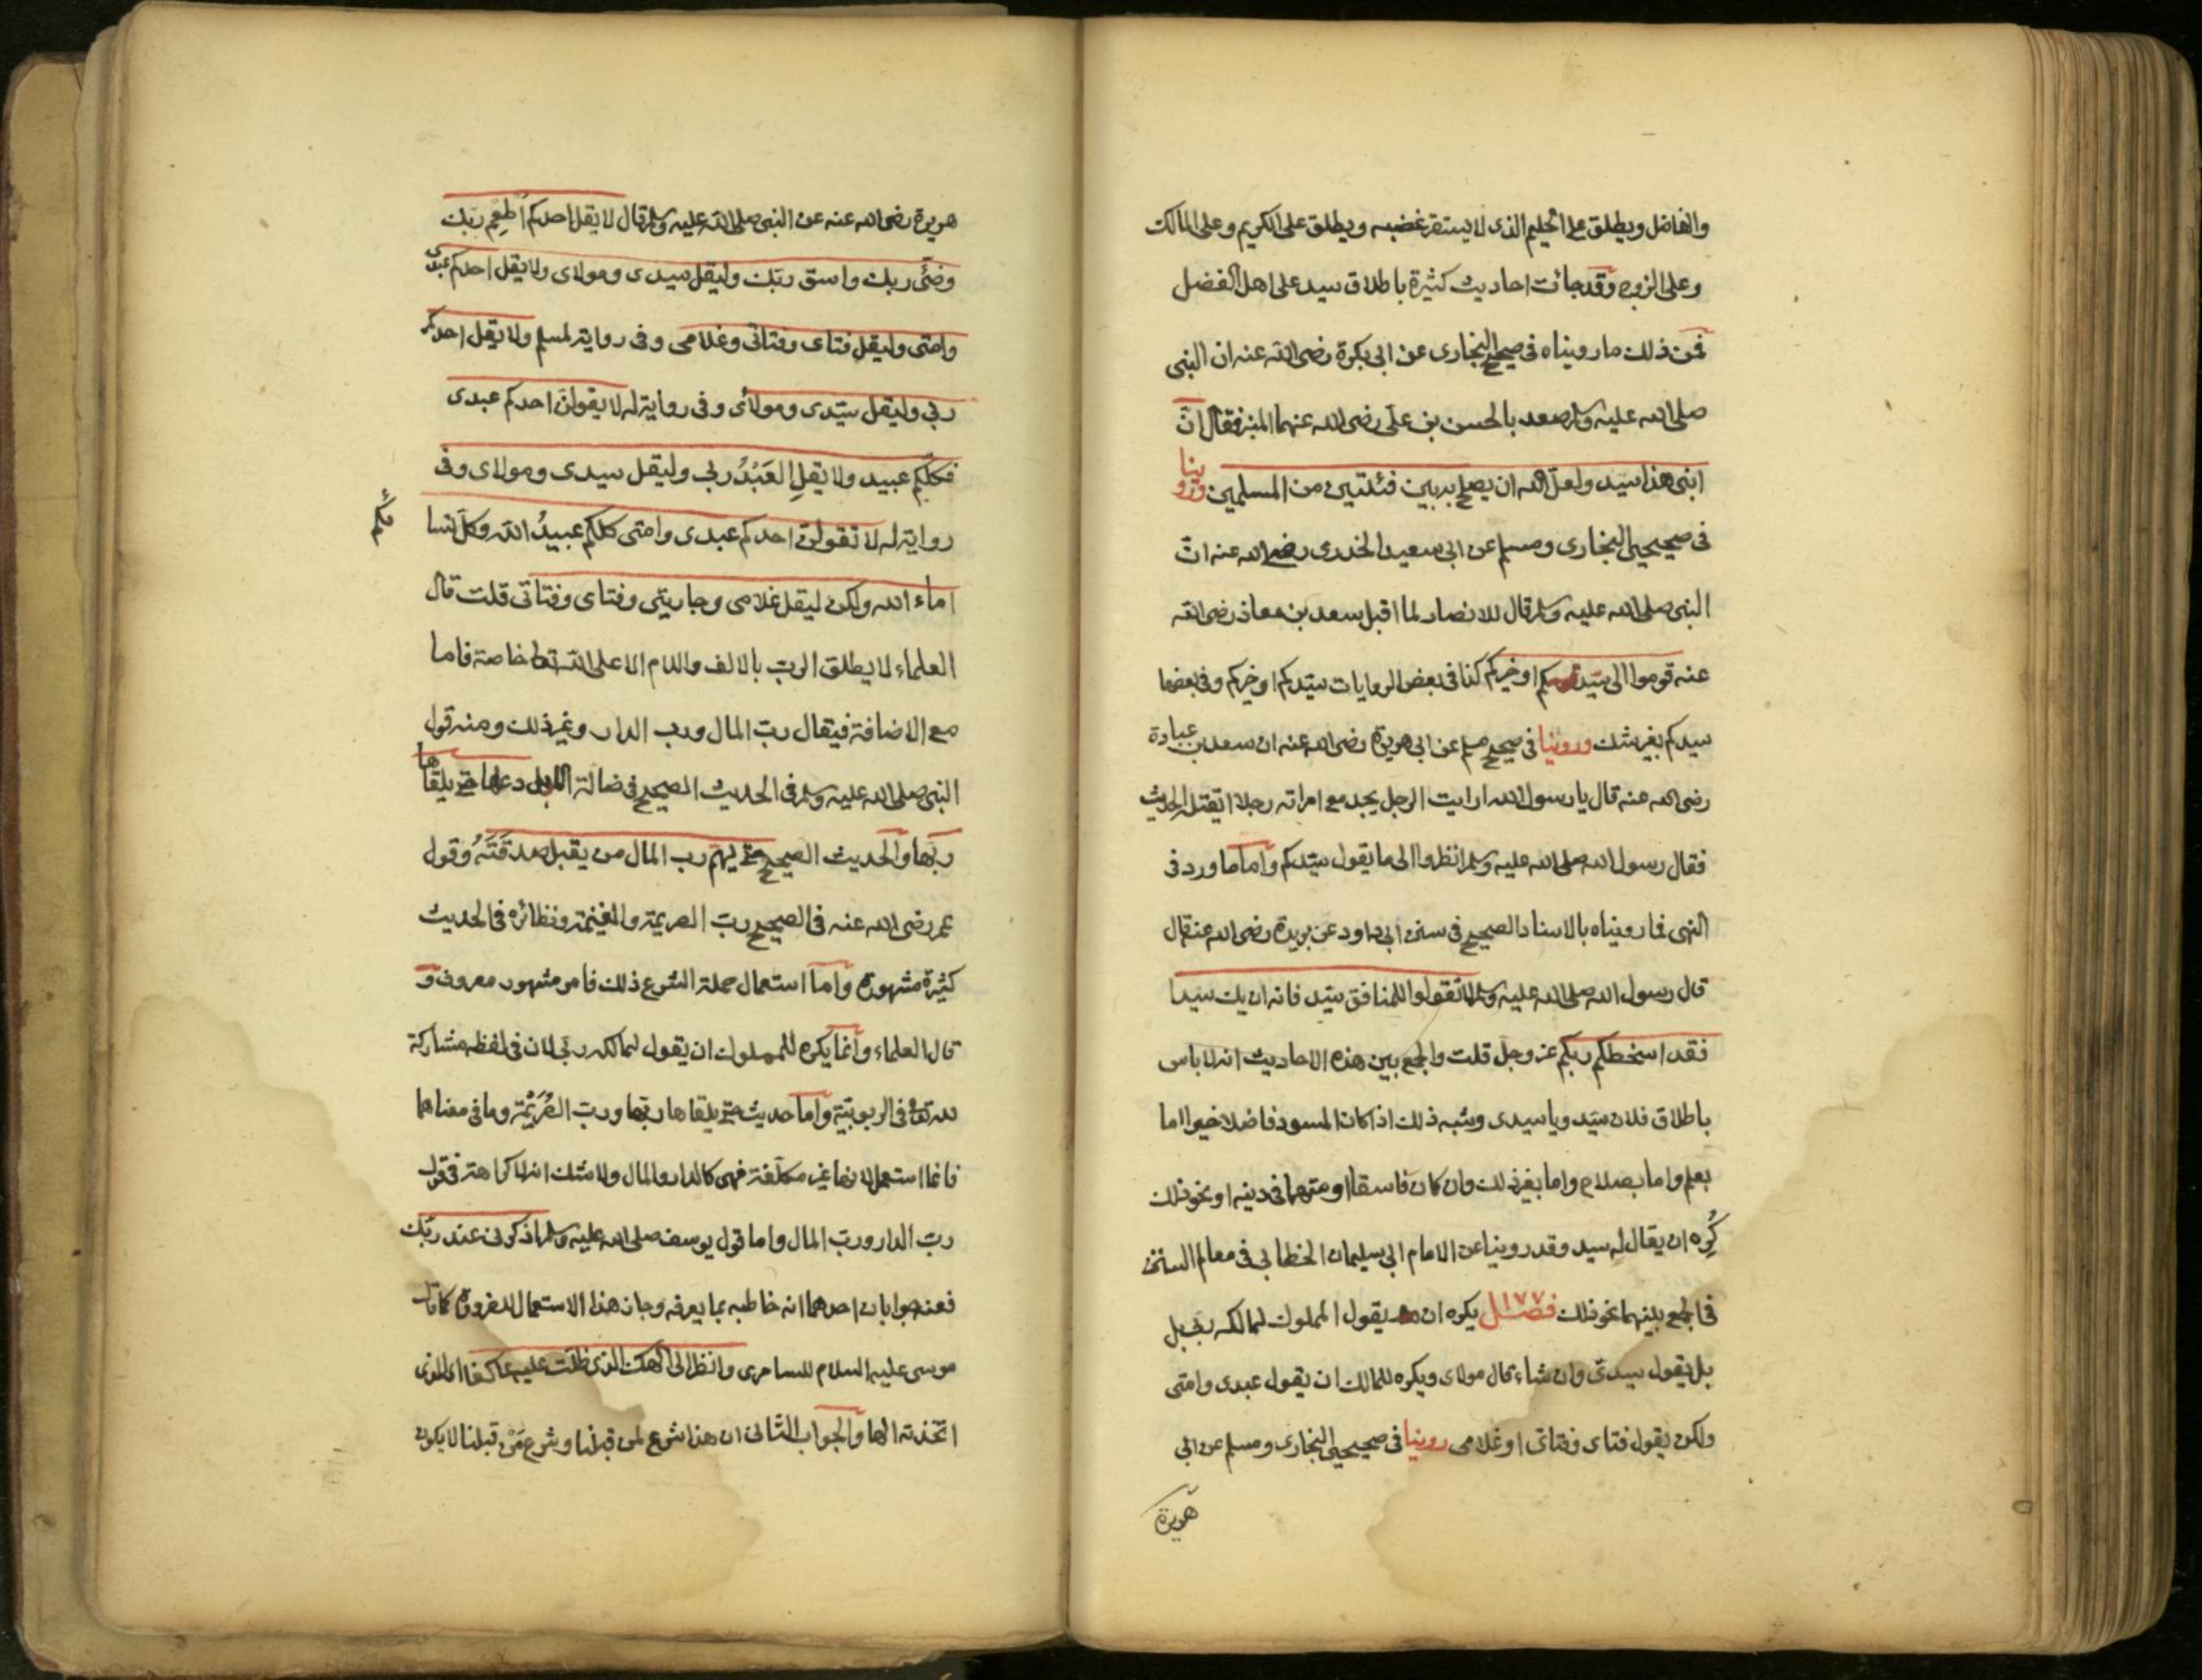 والفاضل ويطلق على الحليم الذى لا يستفز غضبه ويطلق على الكريم وعلى المالك
وعلى الزوج وقد جائت احاديث كثيرة باطلاق سيد على اهل الفضل
فمن ذلك ما رويناه فى صحيح البخارى عن ابى بكرة رضى الله عنه ان النبى
صلى الله عليه وسلم صعد بالحسن بن على رضى الله عنهما المنبر فقال انّ
ابنى هذا سيّد ولعل الله ان يصلح به بين فئتين من المسلمين وروينا
فى صحيحى البخارى ومسلم عن ابى سعيد الخدرى رضى الله عنه انّ
النبى صلى الله عليه وسلم قال للانصار لما اقبل سعد بن معاذ رضى الله
عنه قوموا الى سيّدكم او خيركم كذا فى بعض الروايات سيّدكم او خيركم وفى بعضها
سيدكم بغير شك وروينا فى صحيح مسلم عن ابى هريرة رضى الله عنه ان سعد بن عبادة
رضى الله عنه قال يا رسول الله ارايت الرجل يجد مع امراته رجلا ايقتله الحديث
فقال رسول الله صلى الله عليه وسلم انظروا الى ما يقول سيّدكم واما ما ورد فى
النهى فما رويناه بالاسناد الصحيح فى سنن ابى داود عن بريدة رضى الله عنه قال
قال رسول الله صلى الله عليه وسلم لا تقولوا للمنافق سيّد فانه ان يك سيدا
فقد اسخطكم ربكم عز وجل قلت والجمع بين هذه الاحاديث انه لا باس
باطلاق فلان سيّد ويا سيدى وشبه ذلك اذا كان المسود فاضلا خيرا اما
بعلم واما بصلاح واما بغير ذلك وان كان فاسقا او متهما فى دينه او نحو ذلك
كُرِه ان يقال له سيد وقد روينا عن الامام ابى سليمان الخطابى فى معالم السنن
فى الجمع بينهما نحو ذلك فصــل ١٧٧ يكره ان يقول المملوك لمالكه ربى بل
بل يقول سيدى وان شاء قال مولاى ويكره للمالك ان يقول عبدى وامتى
ولكن يقول فتاى وفتاتى او غلامى روينا فى صحيحى البخارى ومسلم عن ابى
هريرة
هريرة رضى الله عنه عن النبى صلى الله عليه وسلم قال لا يقل احدكم أَطْعِم ربّك
وضّئ ربك واسق ربّك وليقل سيدى ومولاى ولا يقل احدكم عبدى
وامتى وليقل فتاى وفتاتى وغلامى وفى رواية لمسلم ولا يقل احدكم
ربى وليقل سيّدى ومولاى وفى رواية له لا يقولنّ احدكم عبدى
فكلكم عبيد ولا يقلِ العَبْدُ ربى وليقل سيدى ومولاى وفى
رواية له لا تقولنّ احدكم عبدى وامتى كلكم عبيدُ الله وكلّ نسا
ئكم
اماء الله ولكن ليقل غلامى وجاريتى وفتاى وفتاتى قلت قال
العلماء لا يطلق الرب بالالف واللام الا على الله تعالى خاصة فاما
مع الاضافة فيقال ربّ المال ورب الدار وغير ذلك ومنه قول
النبى صلى الله عليه وسلم فى الحديث الصحيح فى ضالة الابل دعها حتى يلقاها
ربّها والحديث الصحيح حتى يهمّ رب المال من يقبل صدقتَهُ وقول
عمر رضى الله عنه فى الصحيح ربّ الصريمة والغنيمة ونظائره فى الحديث
كثيرة مشهورة واما استعمال حملة الشرع ذلك فامر مشهور معروف و
قال العلماء وانما يكره للمملوك ان يقول لمالكه ربى لان فى لفظه مشاركة
لله تعالى فى الربوبيّة واما حديث حتى يلقاها ربّها وربّ الصُّرَيْمة وما فى معناهما
فانما استعمل لانها غير مكلّفة فهى كالدار والمال ولا شك انه لا كراهة فى قول
ربّ الدار وربّ المال واما قول يوسف صلى الله عليه وسلم اذكرنى عند ربّك
فعنه جوابان احدهما انه خاطبه بما يعرفه وجاز هذا الاستعمال للضرورة كما قال
موسى عليه السلام للسامرى وانظر الى الهك الذى ظلت عليه عاكفا اى الذى
اتخذته الها والجواب الثانى ان هذا شرع لمن قبلنا وشرع مَنْ قبلنا لا يكون